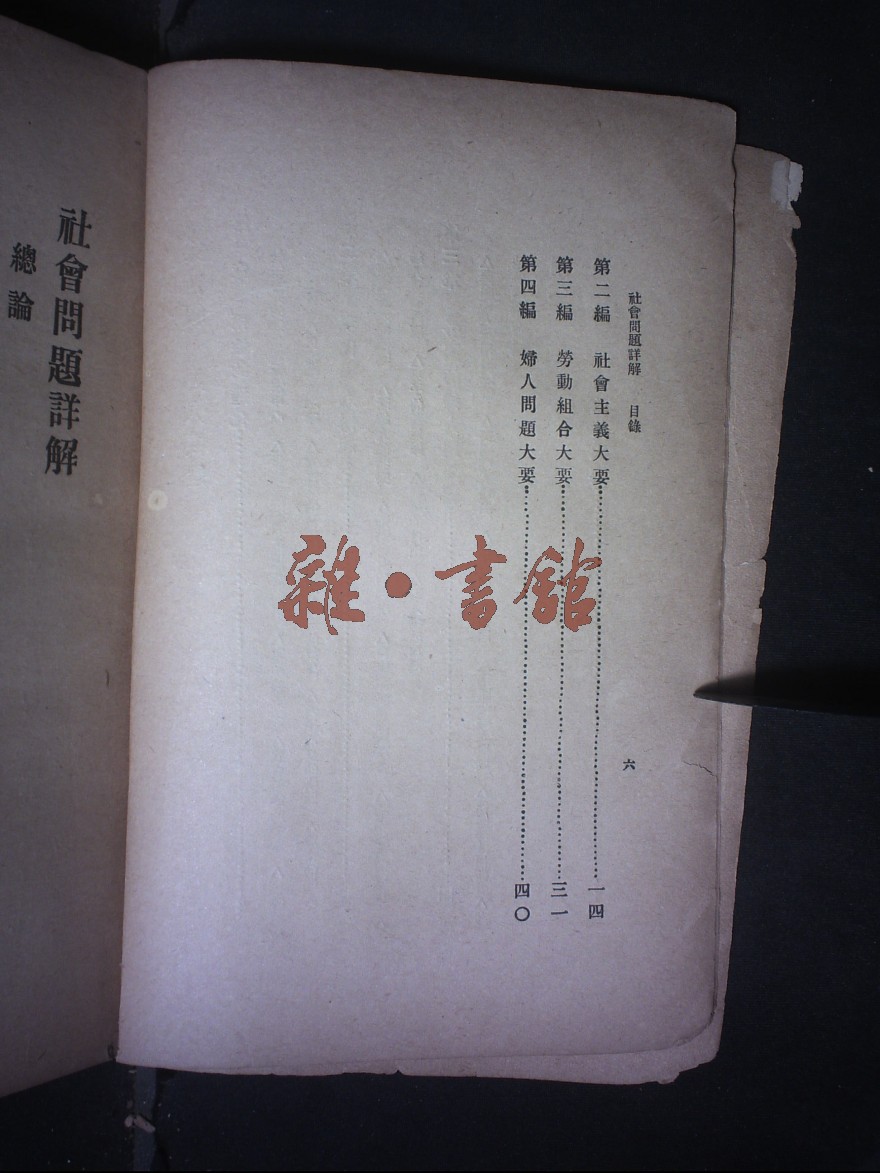 社會問題詳解　目錄　六
第二編　社會主義大要……一四
第三編　勞動組合大要……三一
第四編　婦人問題大要……四〇
社會問題詳解
總論
雜·書館